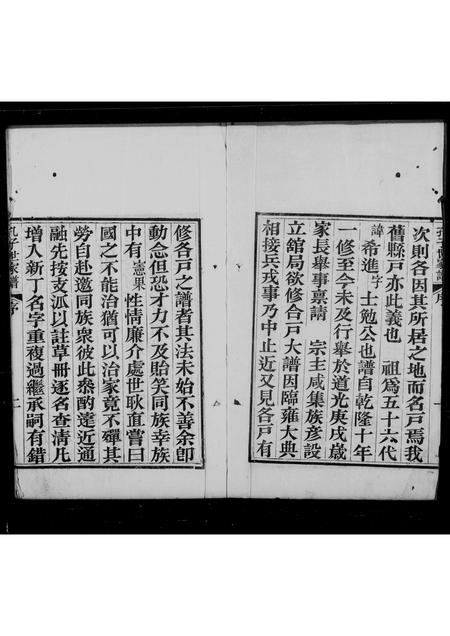 次則各因其所居之地而名戶焉我
舊縣戶亦此義也　祖為五十六代
諱希進字士勉公也譜自乾隆十年
一修至今未及行舉於道光庚戌歲
家長舉事稟請　宗主咸集族彥設
立舘局欲修合戶大譜因臨雍大典
相接兵戎事乃中止近又見各戶有
修各戶之譜者其法未始不善余卽
動念但恐才力不及貽笑同族幸族
中有憲果性情廉介處世耿直嘗曰
國之不能治猶可以治家竟不殫其
勞自赴邀同族衆彼此叅酌遠近通
融先按支派以註草冊逐名查清凡
增入新丁名字重複過繼承嗣有錯
孔子世家譜　序　二